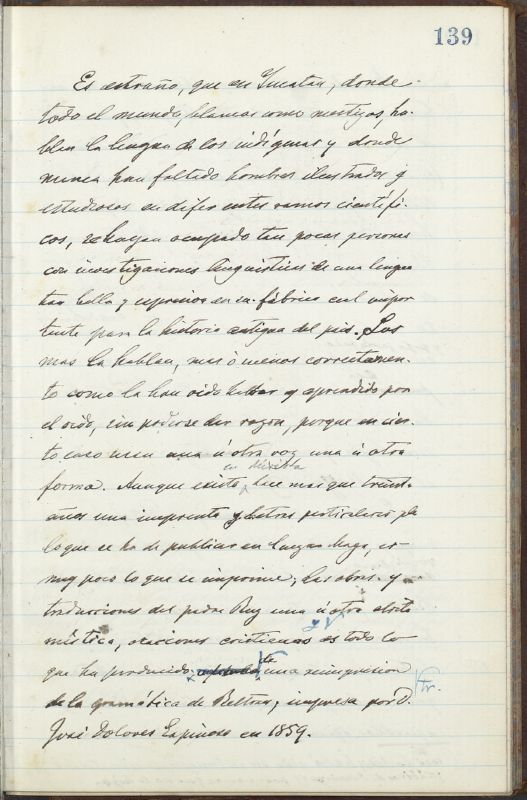 139
Es estraño, que en Yucatan, donde
todo el mundo, blancos como mestizos ha-
blan la lengua de los indígenas y donde
nunca han faltado hombres ilustrados y
estudiosos en diferentes ramos científi-
cos, se hayan ocupado tan pocas personas
con investigaciones linguisticas de una lengua
tan bella y espresiva en su fábrica cual impor
tante para la historia antigua del pais. Los
mas la hablan, mas ó menos correctamen-
te como la han oido hablar y aprendido por
el oido, sin poderse dar razon, porque en cier-
to caso usan una ú otra voz una ú otra
en Mérida
forma. Aunque existe hace mas que treinta
años una imprenta y letras particulares pa
lo que se ha de publicar en lengua Maya, es
muy poco lo que se imprime; las obras y
traducciones del padre Ruz una ú otra obrita
mística, oraciones cristianas es todo lo
que ha producido de una reimpresion tr.
de la gramática de Beltran, impresa por D.
José Dolores Espinosa en 1859.